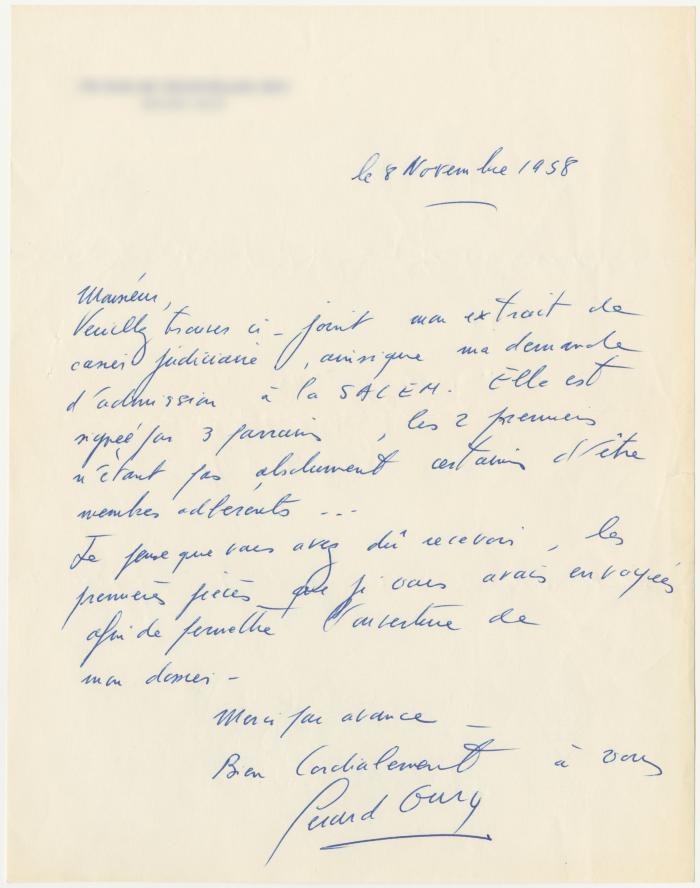 le 8 Novembre 1958
Monsieur,
Veuillez trouver ci-joint mon extrait de
casier judiciaire, ainsi que ma demande
d'admission à la SACEM. Elle est
signée par 3 parrains, les 2 premiers
n'étant pas absolument certains d'être
membres adhérents ...
Je pense que vous avez dû recevoir, les
premières pièces que je vous avais envoyées
afin de permettre l'ouverture de
mon dossier -
Merci par avance -
Bien Cordialement à vous
Gérard Oury